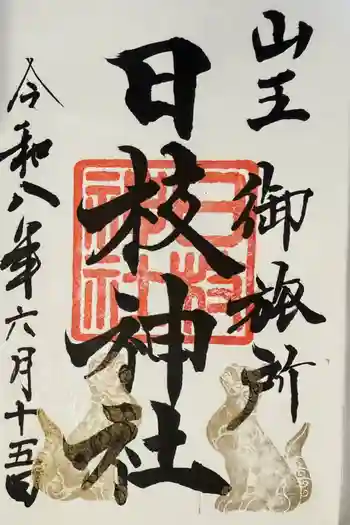 山王 御旅所
日枝神社
令和八年六月十五日
日枝
神社